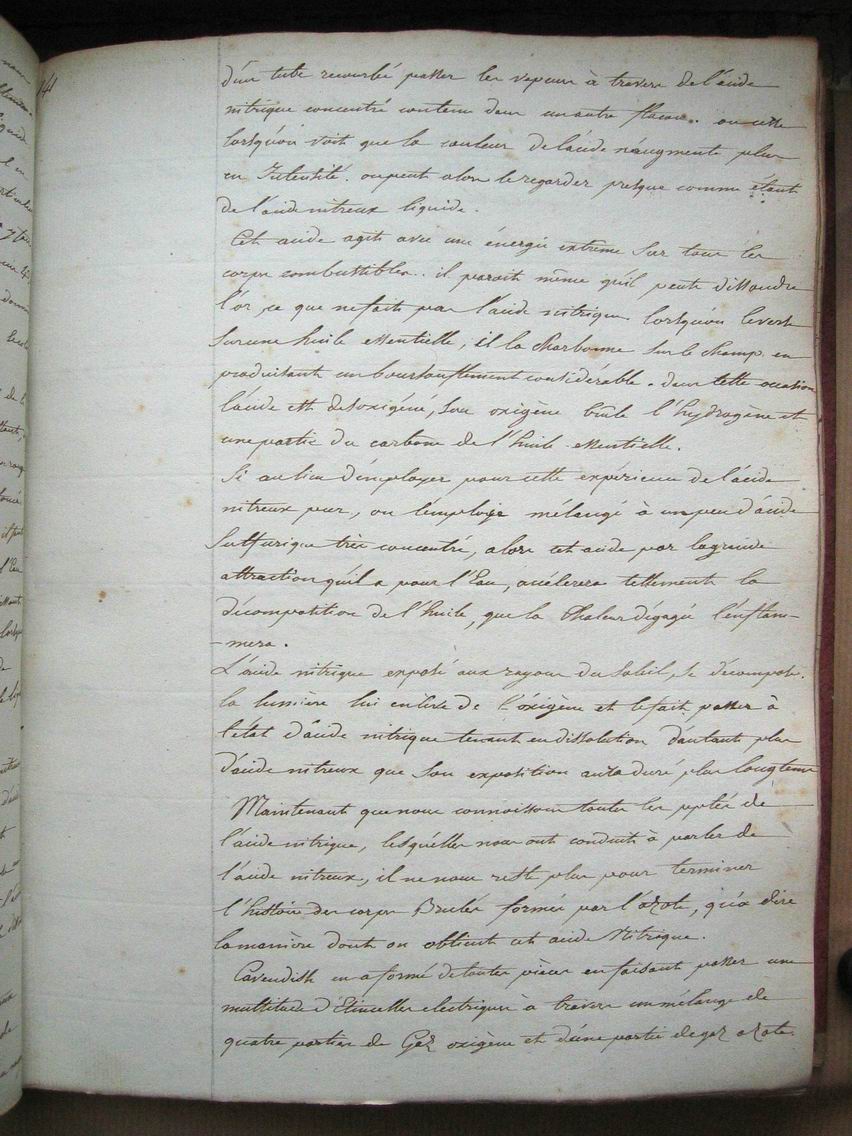 141
d'un tube recourbé passer les vapeurs à travers de l'acide
nitrique concentré contenu dans un autre flacon. on cesse
lorsqu'on voit que la couleur de l'acide n'augmente plus
en Intensité. on peut alors le regarder presque comme étant
de l'acide nitreux liquide.
Cet acide agit avec une énergie extrême sur tous les
corps combustibles. il paroit même qu'il peute dissoudre
l'or, ce que ne fait pas l'acide nitrique. lorsqu'on le verse
sur une huile essentielle, il la Charbonne sur le champ en
produisant un boursouflement considérable. dans cette occasion
l'acide est desoxigéné, son oxigène brûle l'hydrogène et
une partie du carbone de l'huile essentielle.
Si au lieu d'employer pour cette expérience de l'acide
nitreux pur, on l'emploie mélangé à un peu d'acide
Sulfurique très concentré, alors cet acide par la grande
attraction qu'il a pour l'Eau, accélerera tellement la
décomposition de l'huile, que la Chaleur dégagée l'enflam-
-mera.
L'acide nitrique exposé aux rayons du Soleil, se décompose.
la lumière lui enlève de l'oxigène et le fait passer à
l'état d'acide nitrique tenant en dissolution d'autant plus
d'acide nitreux que son exposition aura duré plus longtems
Maintenant que nous connoissons toutes les pptées de
l'acide nitrique, lesquelles nous ont conduit à parler de
l'acide nitreux, il ne nous reste plus pour terminer
l'histoire des corps Brulés formés par l'azote, qu'à dire
la manière dont on obtient cet acide Nitrique.
Cavendish en a formé de toutes pièces en faisant passer une
multitude d'Etincelles electriques à travers un mélange de
quatre parties de Gaz oxigène et d'une partie de gaz azote.